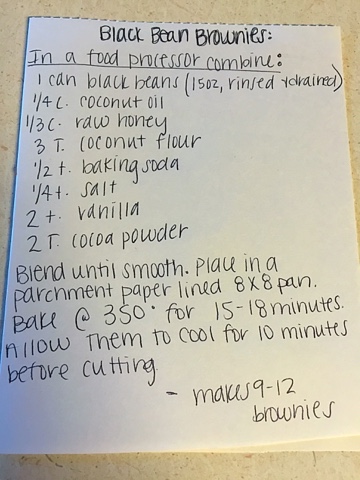 Black Bean Brownies:
In a food processor combine:
1 can black beans (15oz, rinsed + drained)
1/4 c. coconut oil
1/3 c. raw honey
3 T. coconut flour
1/2 t. baking soda
1/4 t. salt
2 t. vanilla
2 T. cocoa powder
Blend until smooth. Place in a
parchment paper lined 8x8 pan.
Bake @ 350° for 15-18 minutes.
Allow them to cool for 10 minutes
before cutting
- makes 9-12
brownies